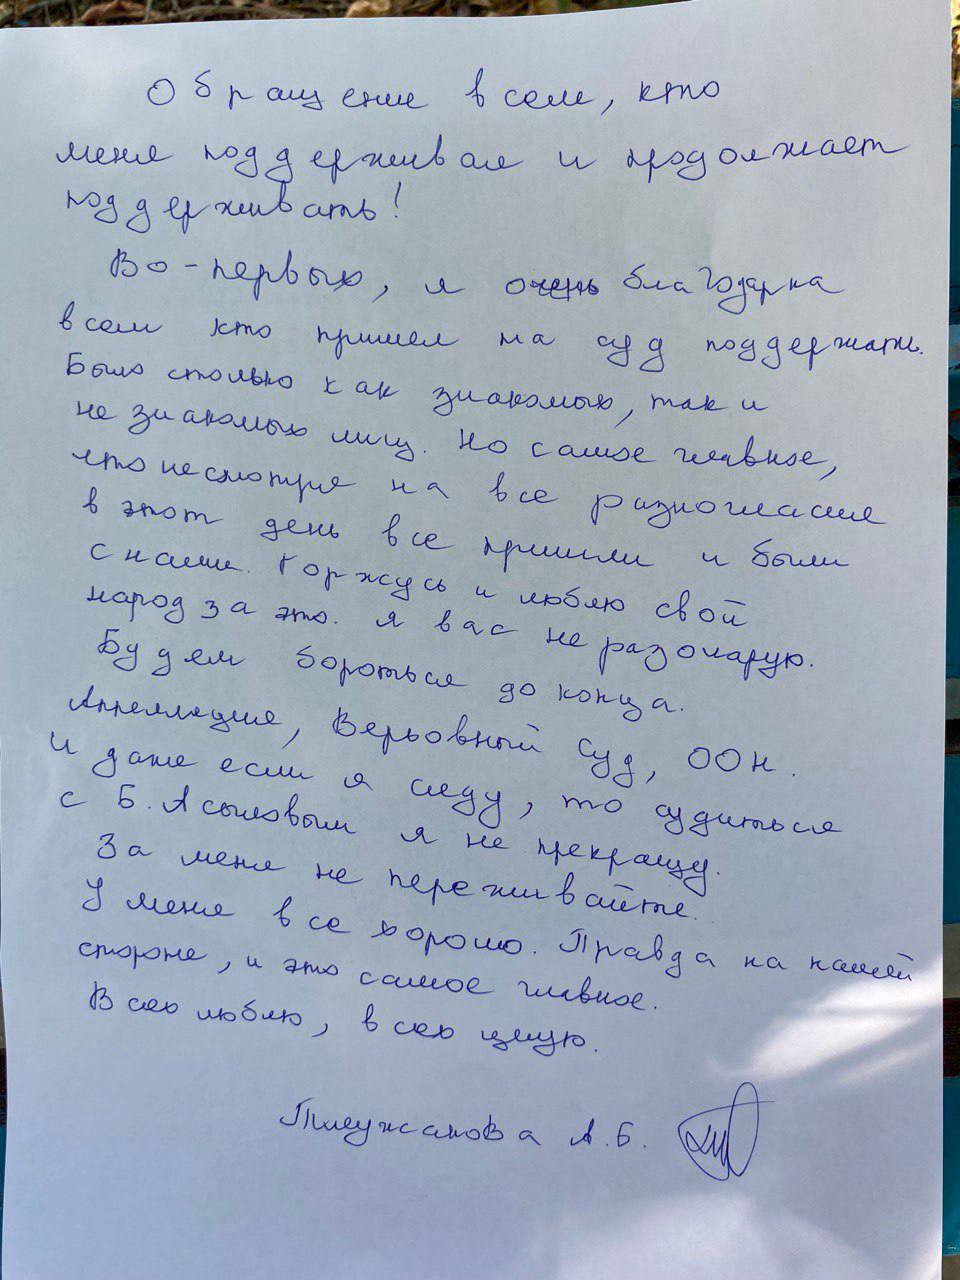 Обращение всем, кто
меня поддерживал и продолжает
поддерживать!
Во-первых, я очень благодарна
всем кто пришел на суд поддержать.
Было столько как знакомых, так и
не знакомых лиц. Но самое главное,
что несмотря на все разногласия
в этот день все пришли и были
с нами. Горжусь и люблю свой
народ за это. Я вас не разочарую.
Будем бороться до конца.
Аппелляция, Верховный суд, ООН.
И даже если я сяду, то судиться
с Б. Асыловым я не прекращу.
За меня не переживайте.
У меня все хорошо. Правда на нашей
стороне, и это самое главное.
Всех люблю, всех целую.
Тлеужанова А.Б.